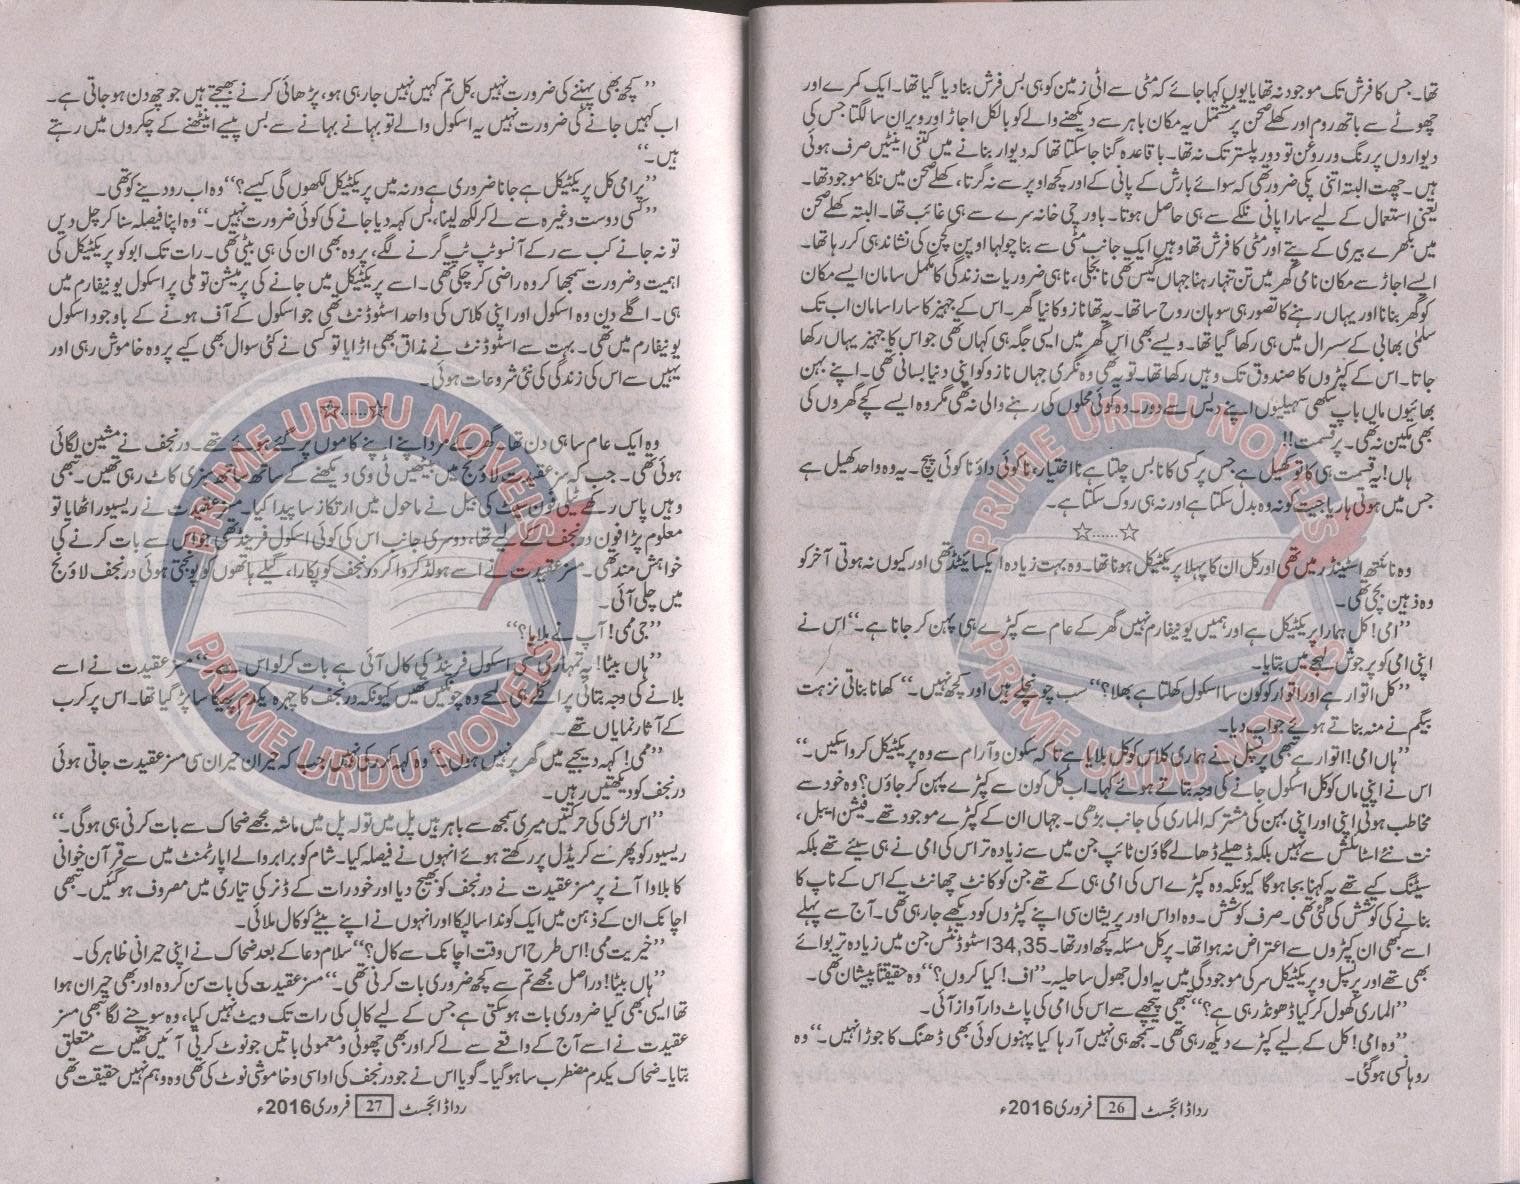 تھا۔ جس کا فرش تک موجود نہ تھا یا یوں کہا جائے کہ مٹی سے اٹی زمین کو ہی بس فرش بنا دیا گیا تھا۔ ایک کمرے اور
چھوٹے سے باتھ روم اور کھلے صحن پر مشتمل یہ مکان باہر سے دیکھنے والے کو بالکل اجاڑ اور ویران سا لگتا جس کی
دیواروں پر رنگ و روغن تو دور پلستر تک نہ تھا۔ باقاعدہ گنا جا سکتا تھا کہ دیوار بنانے میں کتنی اینٹیں صرف ہوئی
ہیں۔ چھت البتہ اتنی پکی ضرور تھی کہ سوائے بارش کے پانی کے اور کچھ اوپر سے نہ گرتا، کھلے صحن میں نلکا موجود تھا۔
یعنی استعمال کے لیے سارا پانی نلکے سے ہی حاصل ہوتا۔ باورچی خانہ سرے سے ہی غائب تھا۔ البتہ کھلے صحن
میں بکھرے بیری کے پتے اور مٹی کا فرش تھا وہیں ایک جانب مٹی سے بنا چولہا اوپن کچن کی نشاندہی کر رہا تھا۔
ایسے اجاڑ سے مکان نامی گھر میں تن تنہا رہنا جہاں گیس تھی نا بجلی، نا ہی ضروریات زندگی کا مکمل سامان ایسے مکان
کو گھر بنانا اور یہاں رہنے کا تصور ہی سوہان روح سا تھا۔ یہ تھا نازو کا نیا گھر۔ اس کے جہیز کا سارا سامان اب تک
سلمٰی بھابی کے سسرال میں ہی رکھا گیا تھا۔ ویسے بھی اس گھر میں ایسی جگہ ہی کہاں تھی جو اس کا جہیز یہاں رکھا
جاتا۔ اس کے کپڑوں کا صندوق تک وہیں رکھا تھا۔ تو یہ تھی وہ نگری جہاں نازو کو اپنی دنیا بسانی تھی۔ اپنے بہن
بھائیوں ماں باپ سکھی سہیلیوں اپنے دیس سے دور۔ وہ کوئی محلوں کی رہنے والی نہ تھی مگر وہ ایسے کچے گھروں کی
بھی مکین نہ تھی۔ پر قسمت!!
ہاں! یہ قسمت ہی کا تو کھیل ہے جس پر کسی کا نا بس چلتا ہے نا اختیار، نا کوئی داؤ نا کوئی پیچ۔ یہ وہ واحد کھیل ہے
جس میں ہوتی ہار یا جیت کو نہ وہ بدل سکتا ہے اور نہ ہی روک سکتا ہے۔
☆......☆
وہ نائنتھ اسٹینڈر میں تھی اور کل ان کا پہلا پریکٹیکل ہونا تھا۔ وہ بہت زیادہ ایکسائیٹڈ تھی اور کیوں نہ ہوتی آخر کو
وہ ذہین بچی تھی۔
”امی! کل ہمارا پریکٹیکل ہے اور ہمیں یونیفارم نہیں گھر کے عام سے کپڑے ہی پہن کر جانا ہے۔“ اس نے
اپنی امی کو پرجوش لہجے میں بتایا۔
”کل اتوار ہے اور اتوار کو کون سا اسکول کھلتا ہے بھلا؟“ سب چونچلے ہیں اور کچھ نہیں۔“ کھانا بناتی نزہت
بیگم نے منہ بناتے ہوئے جواب دیا۔
”ہاں امی! اتوار ہے تبھی پرنسپل نے ہماری کلاس کو کل بلایا ہے تاکہ سکون و آرام سے وہ پریکٹیکل کروا سکیں۔“
اس نے اپنی ماں کو کل اسکول جانے کی وجہ بتاتے ہوئے کہا۔ اب کل کون سے کپڑے پہن کر جاؤں؟ وہ خود سے
مخاطب ہوئی اپنی اور اپنی بہن کی مشترکہ الماری کی جانب بڑھی۔ جہاں ان کے کپڑے موجود تھے۔ فیشن ایبل،
نت نئے اسٹائلش سے نہیں بلکہ ڈھیلے ڈھالے گاؤن ٹائپ جن میں سے زیادہ تر اس کی امی نے ہی سیئے تھے بلکہ
سیٹنگ کیے تھے یہ کہنا بجا ہوگا کیونکہ وہ کپڑے اس کی امی ہی کے تھے جن کو کانٹ چھانٹ کے اس کے ناپ کا
بنانے کی کوشش کی گئی تھی۔ صرف کوشش۔ وہ اداس اور پریشان سی اپنے کپڑوں کو دیکھے جا رہی تھی۔ آج سے پہلے
اسے بھی ان کپڑوں سے اعتراض نہ ہوا تھا۔ پر کل مسئلہ کچھ اور تھا۔ 34,35 اسٹوڈنٹس جن میں زیادہ تر بوائے
بھی تھے اور پرنسپل و پریکٹیکل سر کی موجودگی میں یہ اول جھول سا حلیہ۔ ”اف! کیا کروں؟“ وہ حقیقتاً پیشان تھی۔
”الماری کھول کر کیا ڈھونڈ رہی ہے؟“ تبھی پیچھے سے اس کی امی کی پاٹ دار آواز آئی۔
”وہ امی! کل کے لیے کپڑے دیکھ رہی تھی۔ سمجھ ہی نہیں آ رہا کیا پہنوں کوئی بھی ڈھنگ کا جوڑا نہیں۔“ وہ
روہانسی ہو گئی۔
ردا ڈائجسٹ 26 فروری 2016ء
”کچھ بھی پہننے کی ضرورت نہیں، کل تم کہیں نہیں جا رہی ہو، پڑھائی کرنے بھیجتے ہیں جو چھ دن ہو جاتی ہے۔
اب کہیں جانے کی ضرورت نہیں یہ اسکول والے تو بہانے بہانے سے بس پیسے اینٹھنے کے چکروں میں رہتے
ہیں۔“
”پر امی کل پریکٹیکل ہے جانا ضروری ہے ورنہ میں پریکٹیکل لکھوں گی کیسے؟“ وہ اب رو دینے کو تھی۔
”کسی دوست وغیرہ سے لے کر لکھ لینا، بس کہہ دیا جانے کی کوئی ضرورت نہیں۔“ وہ اپنا فیصلہ سنا کر چل دیں
تو نہ جانے کب سے رکے آنسو ٹپ ٹپ گرنے لگے، پر وہ بھی ان کی ہی بیٹی تھی۔ رات تک ابو کو پریکٹیکل کی
اہمیت و ضرورت سمجھا کر وہ راضی کر چکی تھی۔ اسے پریکٹیکل میں جانے کی پرمیشن تو ملی پر اسکول یونیفارم میں
ہی۔ اگلے دن وہ اسکول اور اپنی کلاس کی واحد اسٹوڈنٹ تھی جو اسکول کے آف ہونے کے باوجود اسکول
یونیفارم میں تھی۔ بہت سے اسٹوڈنٹ نے مذاق بھی اڑایا تو کسی نے کئی سوال بھی کیے پر وہ خاموش رہی اور
یہیں سے اس کی زندگی کی نئی شروعات ہوئی۔
☆......☆
وہ ایک عام سا ہی دن تھا۔ گھر کے مرد اپنے اپنے کاموں پر گئے ہوئے تھے۔ درنجف نے مشین لگائی
ہوئی تھی۔ جب کہ مسز عقیدت لاؤنج میں بیٹھیں ٹی وی دیکھنے کے ساتھ ساتھ سبزی کاٹ رہی تھیں۔ تبھی
وہیں پاس رکھے ٹیلی فون سیٹ کی بیل نے ماحول میں ارتکاز سا پیدا کیا۔ مسز عقیدت نے ریسیور اٹھایا تو
معلوم پڑا فون درنجف کے لیے تھا، دوسری جانب اس کی کوئی اسکول فرینڈ تھی جو اس سے بات کرنے کی
خواہش مند تھی۔ مسز عقیدت نے اسے ہولڈ کروا کر درنجف کو پکارا، گیلے ہاتھوں کو پونچھتی ہوئی درنجف لاؤنج
میں چلی آئی۔
”جی ممی! آپ نے بلایا؟“
”ہاں بیٹا! یہ تمہاری کسی اسکول فرینڈ کی کال آئی ہے بات کر لو اس سے۔“ مسز عقیدت نے اسے
بلانے کی وجہ بتائی پر اگلے ہی لمحے وہ چونکیں تھیں کیونکہ درنجف کا چہرہ یکدم پھیکا سا پڑ گیا تھا۔ اس پر کرب
کے آثار نمایاں تھے۔
”ممی! کہہ دیجیے میں گھر پر نہیں ہوں۔“ وہ کہہ کر رکی نہیں جب کہ حیران حیران سی مسز عقیدت جاتی ہوئی
درنجف کو دیکھتیں رہیں۔
”اس لڑکی کی حرکتیں میری سمجھ سے باہر ہیں پل میں تولہ پل میں ماشہ مجھے ضحاک سے بات کرنی ہی ہوگی۔“
ریسیور کو پھر سے کریڈل پر رکھتے ہوئے انہوں نے فیصلہ کیا۔ شام کو برابر والے اپارٹمنٹ میں سے قرآن خوانی
کا بلاوا آنے پر مسز عقیدت نے درنجف کو بھیج دیا اور خود رات کے ڈنر کی تیاری میں مصروف ہو گئیں۔ تبھی
اچانک ان کے ذہن میں ایک کوندا سا لپکا اور انہوں نے اپنے بیٹے کو کال ملائی۔
”خیریت ممی! اس طرح اس وقت اچانک سے کال؟“ سلام دعا کے بعد ضحاک نے اپنی حیرانی ظاہر کی۔
”ہاں بیٹا! دراصل مجھے تم سے کچھ ضروری بات کرنی تھی۔“ مسز عقیدت کی بات سن کر وہ اور بھی حیران ہوا
تھا ایسی بھی کیا ضروری بات ہو سکتی ہے جس کے لیے کال کی رات تک ویٹ نہیں کیا، وہ سوچنے لگا تبھی مسز
عقیدت نے اسے آج کے واقعے سے لے کر اور بھی چھوٹی و معمولی باتیں جو نوٹ کرتی آئیں تھیں سے متعلق
بتایا۔ ضحاک یکدم مضطرب سا ہو گیا۔ گویا اس نے جو درنجف کی اداسی و خاموشی نوٹ کی تھی وہ وہم نہیں حقیقت تھی
ردا ڈائجسٹ 27 فروری 2016ء
PRIME URDU NOVELS
PRIME URDU NOVELS
PRIME URDU NOVELS
PRIME URDU NOVELS